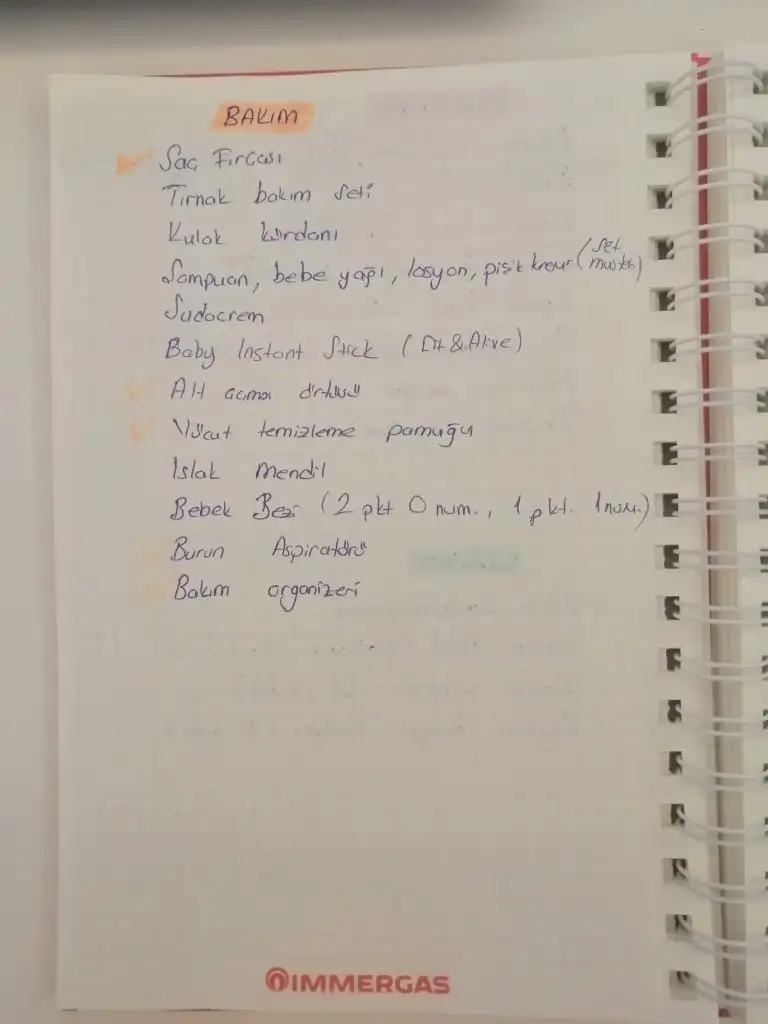 BAKIM
Saç Fırçası
Tırnak bakım seti
Kulak kürdanı
Şampuan, bebe yağı, losyon, pişik kremi (set mustela)
Sudocrem
Baby Instant Stick ( Dt & Alive)
Alt açma örtüsü
Vücut temizleme pamuğu
Islak mendil
Bebek Bezi (2 pkt 0 num., 1 pkt. 1 num.)
Burun Aspiratörü
Bakım organizeri
IMMERGAS